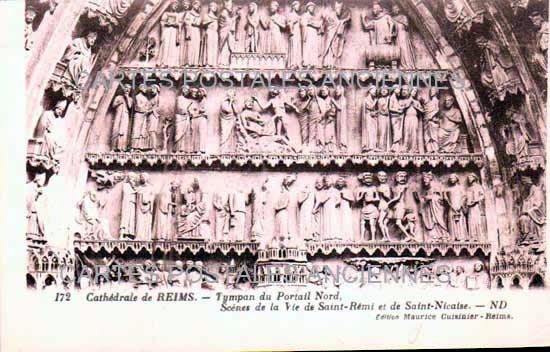 CARTES POSTALES ANCIENNES
CARTES POSTALES ANCIENNES
172 Cathédrale de REIMS. - Tympan du Portail Nord,
Scènes de la Vie de Saint-Rémi et de Saint-Nicaise. - ND
Edition Maurice Cuisinier - Reims.